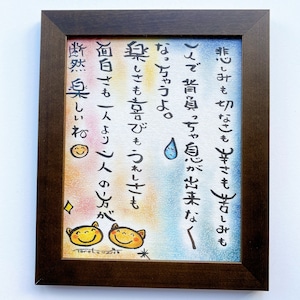 悲しみも切なさも辛さも苦しみも
一人で背負っちゃ息が出来なく
なっちゃうよ。
楽しさも喜びもうれしさも
面白さも一人より二人の方が
断然楽しいね